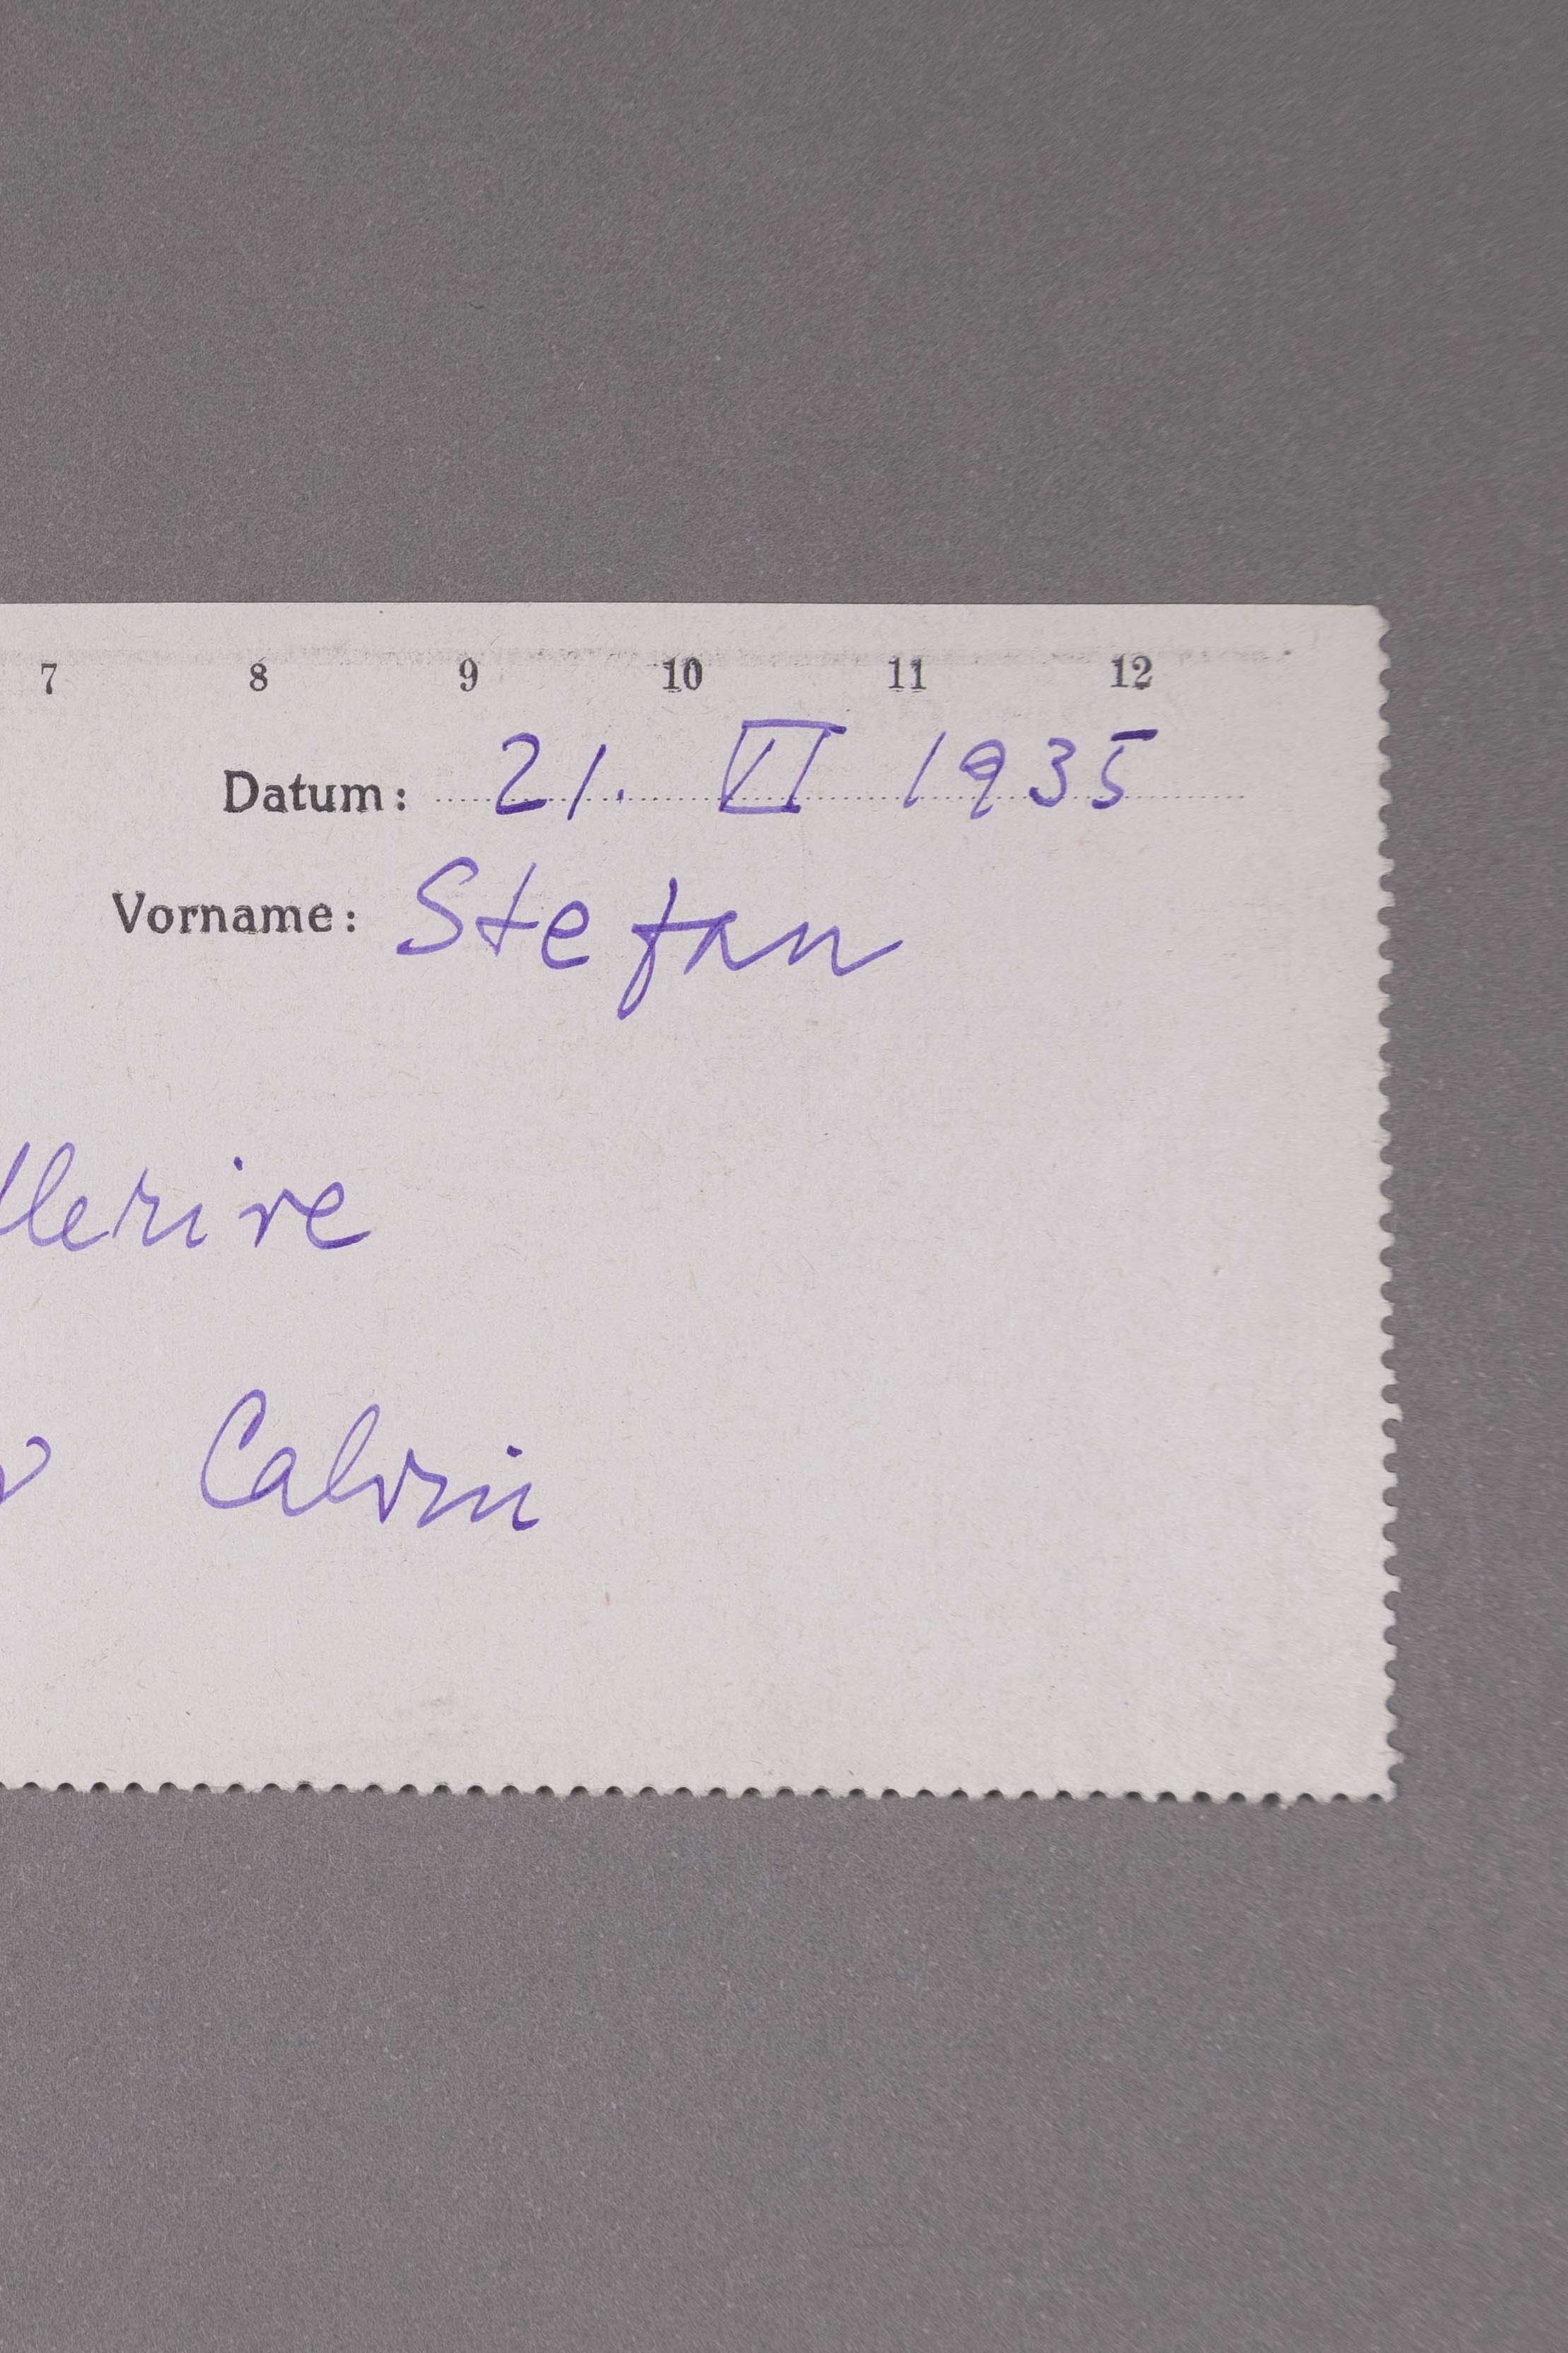 7 8 9 10 11 12
Datum: 21. VI 1935
Vorname: Stefan
Calvin